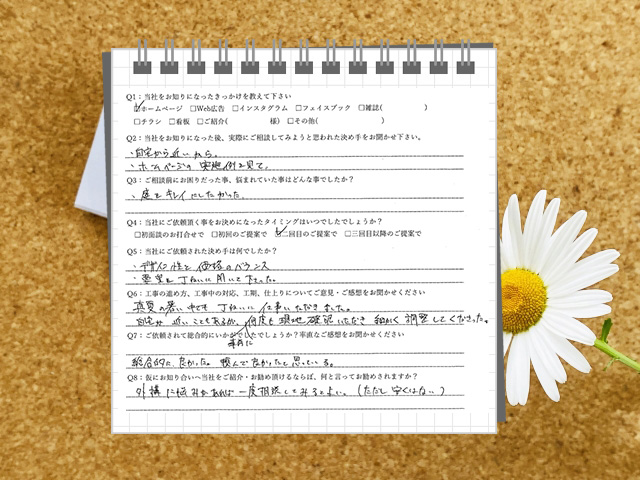 Q1：当社をお知りになったきっかけを教えて下さい
☑ホームページ □Web広告 □インスタグラム □フェイスブック □雑誌( )
□チラシ □看板 □ご紹介( 様) □その他( )
Q2：当社をお知りになった後、実際にご相談してみようと思われた決め手をお聞かせ下さい。
・自宅から近いから。
・ホームページの実施例を見て。
Q3：ご相談前にお困りだった事、悩まれていた事はどんな事でしたか？
・庭をキレイにしたかった。
Q4：当社にご依頼頂く事をお決めになったタイミングはいつでしたでしょうか？
□初面談のお打合せで □初回のご提案で ☑二回目のご提案で □三回目以降のご提案で
Q5：当社にご依頼された決め手は何でしたか？
・デザイン性と価格のバランス
・要望をていねいに聞いて下さった。
Q6：工事の進め方、工事中の対応、工期、仕上りについてご意見・ご感想をお聞かせください
真夏の暑い中でもていねいに仕事いただきました。
自宅が近いこともあるが、何度も現地確認いただき細かく調整してくださった。
Q7：ご依頼されて総合的にいかがでしたでしょうか？率直なご感想をお聞かせください
事前に
総合的に良かった。頼んで良かったと思っている。
Q8：仮にお知り合いへ当社をご紹介・お勧め頂けるならば、何と言ってお勧めされますか？
外構に悩みがあれば一度相談してみるとよい。(ただし安くはない)